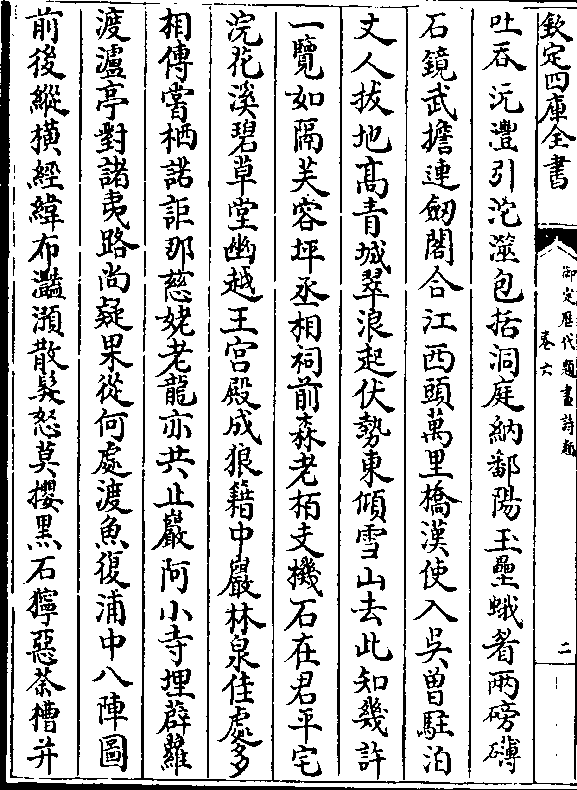 欽定四庫全書
御定歷代題畫詩類
卷六
二
吐吞沅澧引沱澨包括洞庭納鄱陽玉壘蛾眉兩磅礴
石鏡武擔連劒閣合江西頭萬里橋漢使入吳曽駐泊
丈人拔地髙青城翠浪起伏勢東傾雪山去此知幾許
一覽如隔芙容坪丞相祠前森老柏支機石在君平宅
浣花溪碧草堂幽越王宫殿成狼籍中巖林泉佳處多
相傳嘗栖諾詎那慈姥老龍亦共止巖阿小寺埋薜蘿
渡瀘亭對諸夷路尚疑果從何處渡魚復浦中八陣圖
前後縱横經緯布灎澦散髮怒莫攖黒石獰惡茶槽并